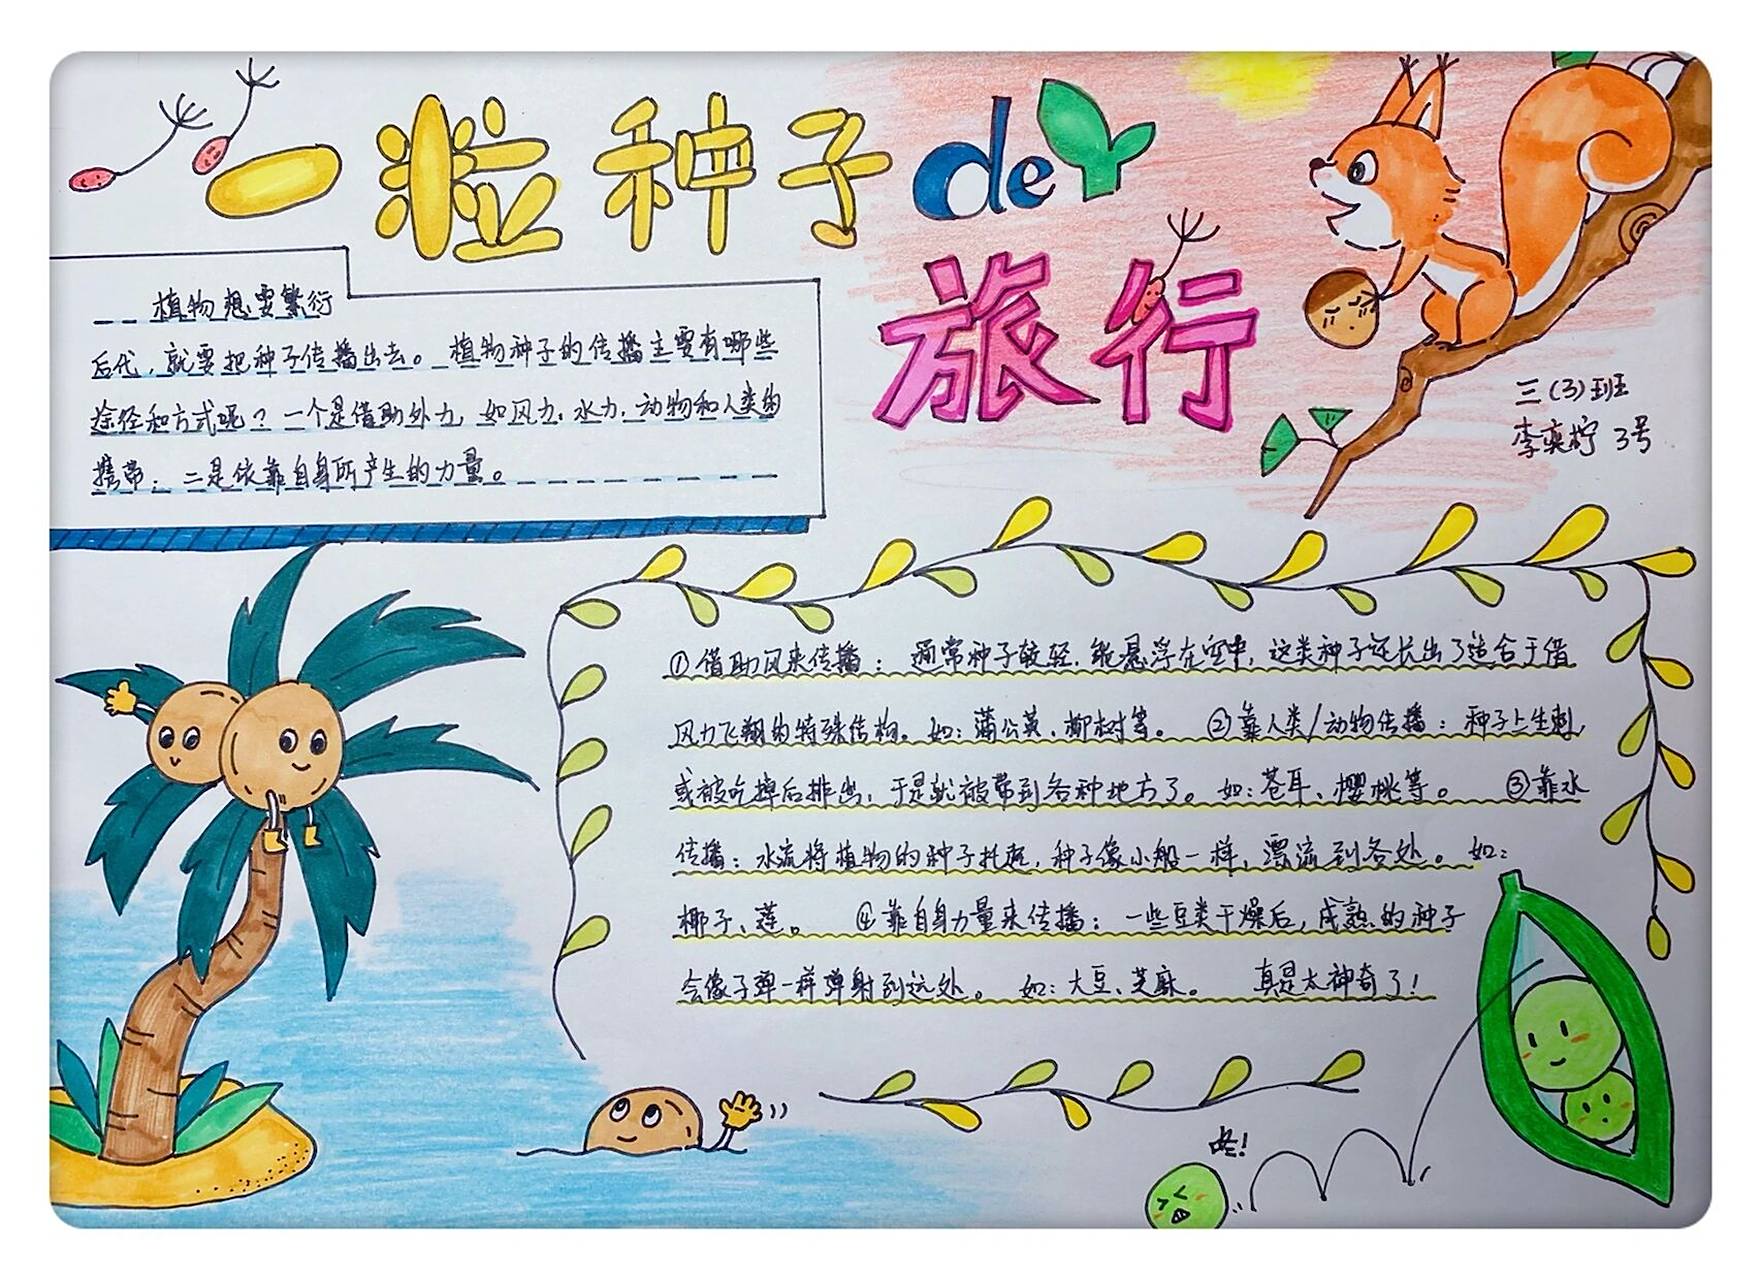 一粒种子de
旅行
植物想要繁衍
后代，就要把种子传播出去。植物种子的传播主要有哪些
途径和方式呢？一个是借助外力，如风力、水力、动物和人类的
携带；二是依靠自身所产生的力量。
三(3)班
李奕柠 3号
①借助风来传播：通常种子较轻，能悬浮在空中，这类种子还长出了适合于借
风力飞翔的特殊结构。如：蒲公英、柳树等。 ②靠人类/动物传播：种子上生刺，
或被吃掉后排出，于是就被带到各种地方了。如：苍耳、樱桃等。 ③靠水
传播：水流将植物的种子托起，种子像小船一样，漂流到各处。如：
椰子、莲。 ④靠自身力量来传播：一些豆类干燥后，成熟的种子
会像子弹一样弹射到远处。如：大豆、芝麻。 真是太神奇了！
咚！